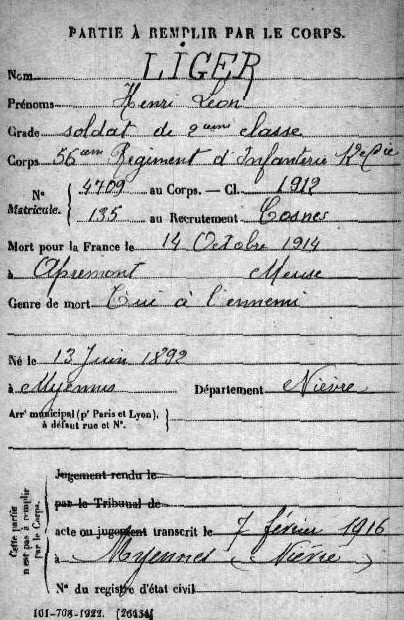 PARTIE À REMPLIR PAR LE CORPS.
Nom LIGER
Prénoms Henri Léon
Grade soldat de 2eme classe
Corps 56eme Régiment d'Infanterie 12e Cie
N° Matricule. { 4709 au Corps. — Cl. 1912
135 au Recrutement Cosnes
Mort pour la France le 14 Octobre 1914
à Apremont Meuse
Genre de mort Tué à l'ennemi
Né le 13 Juin 1892
à Myennes Département Nièvre
Arrt municipal (pr Paris et Lyon), à défaut rue et N°.
Cette partie n'est pas à remplir par le Corps.
Jugement rendu le
par le Tribunal de
acte ou jugement transcrit le 7 février 1916
à Myennes (Nièvre)
N° du registre d'état civil
101-708-1922. [26434]